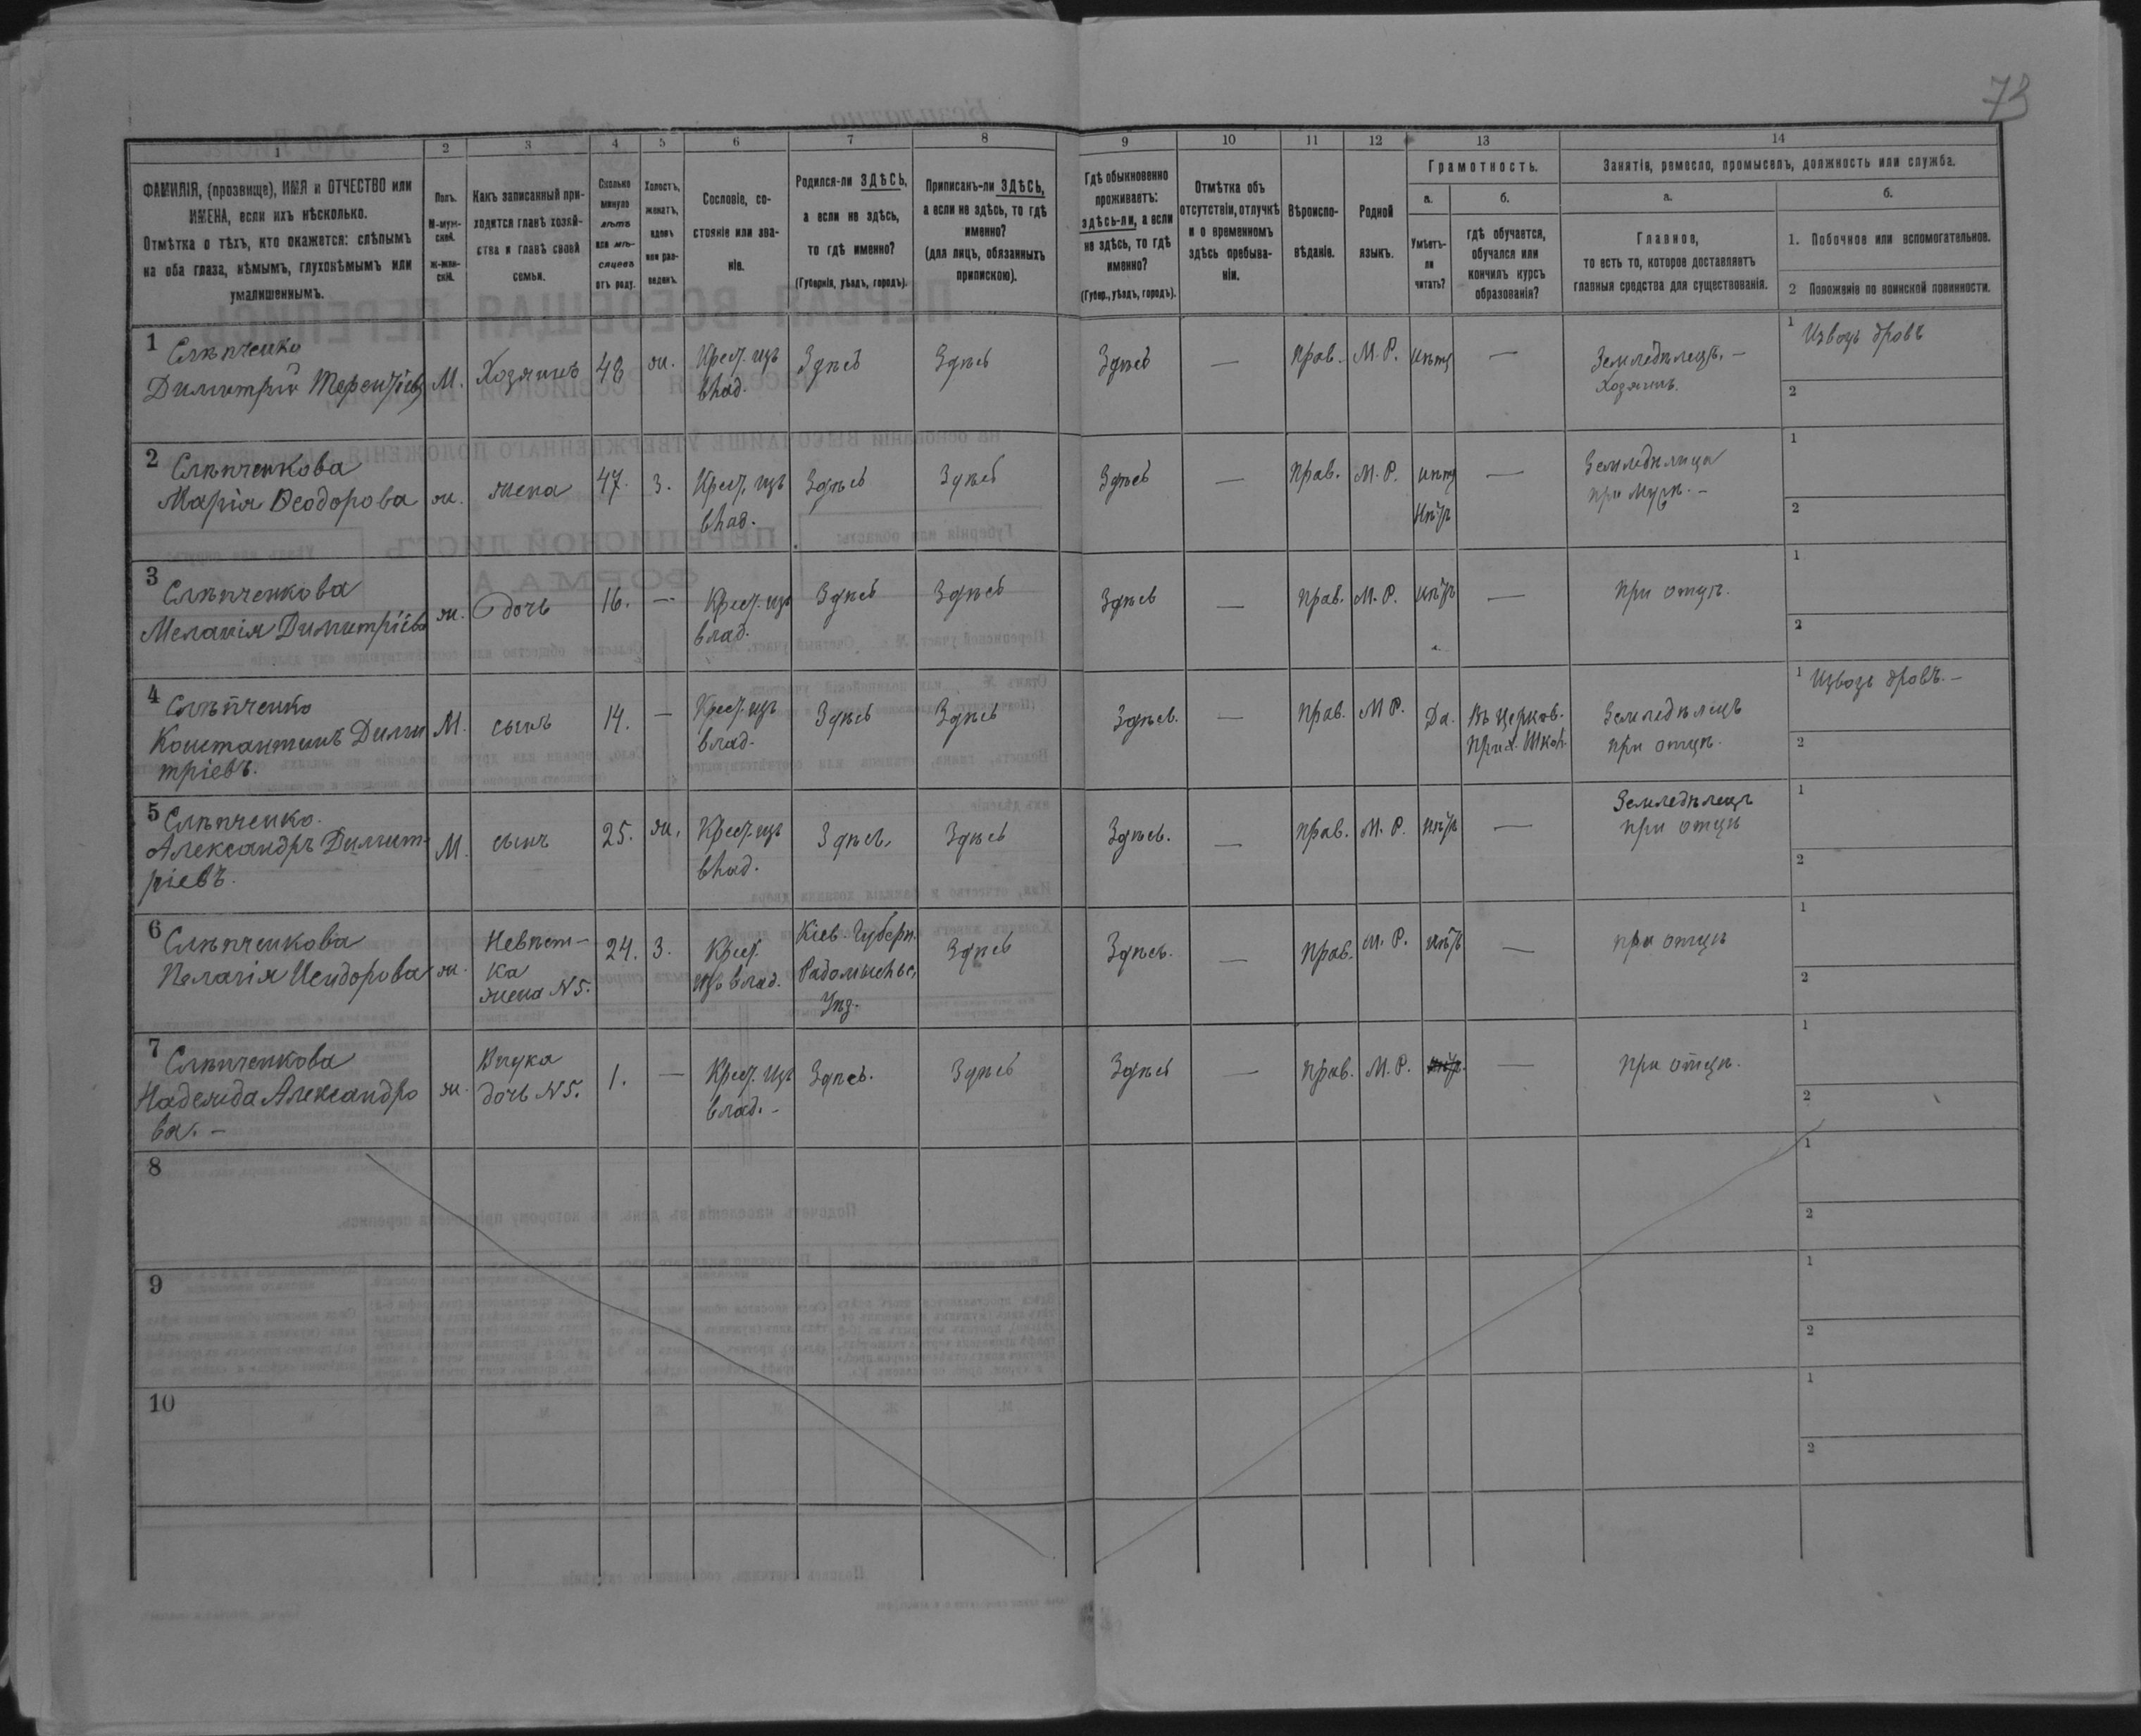 73
1 2 3 4 5 6 7 8 9 10 11 12 13 14
ФАМИЛІЯ, (прозвище), ИМЯ и ОТЧЕСТВО или
ИМЕНА, если ихъ нѣсколько.
Отмѣтка о тѣхъ, кто окажется: слѣпымъ
на оба глаза, нѣмымъ, глухонѣмымъ или
умалишеннымъ.
Полъ.
М-муж-
ской.
Ж-жен-
скій.
Какъ записанный при-
ходится главѣ хозяй-
ства и главѣ своей
семьи.
Сколько
минуло
лѣтъ
или мѣ-
сяцевъ
отъ роду.
Холостъ,
женатъ,
вдовъ
или раз-
веденъ.
Сословіе, со-
стояніе или зва-
ніе.
Родился-ли ЗДѢСЬ,
а если не здѣсь,
то гдѣ именно?
(Губернія, уѣздъ, городъ).
Приписанъ-ли ЗДѢСЬ,
а если не здѣсь, то гдѣ
именно?
(для лицъ, обязанныхъ
припискою).
Гдѣ обыкновенно
проживаетъ:
здѣсь-ли, а если
не здѣсь, то гдѣ
именно?
(Губер., уѣздъ, городъ).
Отмѣтка объ
отсутствіи, отлучкѣ
и о временномъ
здѣсь пребыва-
ніи.
Вѣроиспо-
вѣданіе.
Родной
языкъ.
Грамотность.
а.
Умѣетъ-
ли
читать?
б.
гдѣ обучается,
обучался или
кончилъ курсъ
образованія?
Занятія, ремесло, промыселъ, должность или служба.
а.
Главное,
то есть то, которое доставляетъ
главныя средства для существованія.
б.
1. Побочное или вспомогательное.
2 Положеніе по воинской повинности.
1 Слѣпченко
Димитрій Терентіевъ
М. Хозяинъ 48 ж. Крест. изъ
влад.
Здѣсь Здѣсь Здѣсь — Прав. М. Р. нѣтъ — Земледѣлецъ. –
Хозяинъ.
1 Извозъ дровъ
2
2 Слѣпченкова
Марія Ѳеодорова
ж. жена 47. З. Крест. изъ
влад.
Здѣсь Здѣсь Здѣсь — Прав. М. Р. нѣтъ
нѣтъ
— Земледѣлица
при мужѣ. –
1
2
3 Слѣпченкова
Меланія Димитріева
ж. дочь 16. — Крест. изъ
влад.
Здѣсь Здѣсь Здѣсь — Прав. М. Р. нѣтъ — при отцѣ.
1
2
4 Слѣпченко
Константинъ Дими
тріевъ.
М. сынъ 14. — Крест. изъ
влад.
Здѣсь Здѣсь Здѣсь. — Прав. М Р. Да. Въ церков.
прих. Школ.
Земледѣлецъ
при отцѣ.
1 Извозъ дровъ. –
2
5 Слѣпченко.
Александръ Димит-
ріевъ.
М. сынъ 25. ж. Крест. изъ
влад.
Здѣсь. Здѣсь Здѣсь. — Прав. М. Р. нѣтъ — Земледѣлецъ
при отцѣ
1
2
6 Слѣпченкова
Пелагія Исидорова
ж. Невѣст-
ка
жена N 5.
24. З. Крест.
изъ влад.
Кіев. Губерн.
Радомысльс.
Уѣз.
Здѣсь Здѣсь. — Прав. М. Р. нѣтъ — при отцѣ
1
2
7 Слѣпченкова
Надежда Александро
ва. –
ж. Внука
дочь N 5.
1. — Крест. изъ
влад. –
Здѣсь. Здѣсь Здѣсь — Прав. М. Р. нѣтъ. — при отцѣ.
1
2
8
1
2
9
1
2
10
1
2